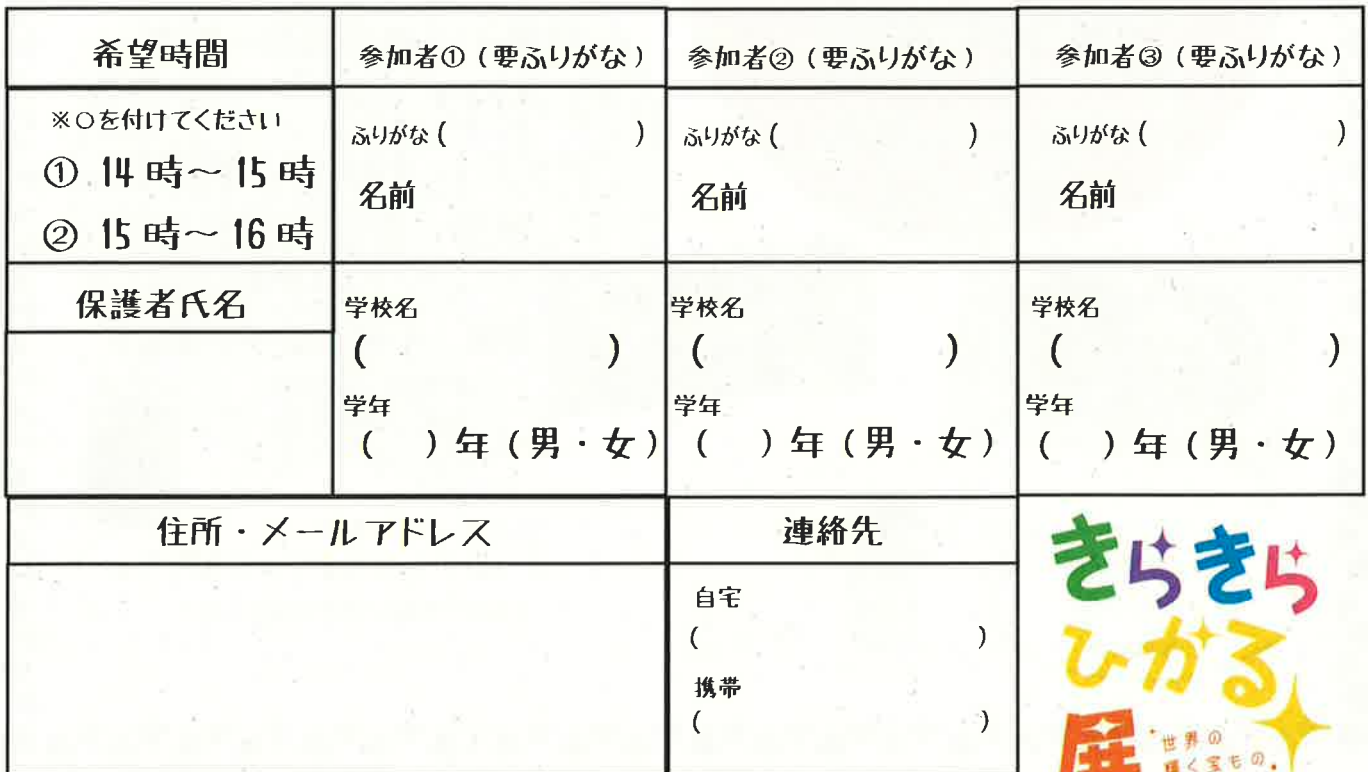 希望時間
参加者①(要ふりがな)
参加者②(要ふりがな)
参加者③(要ふりがな)
※○を付けてください
① 14時〜15時
② 15時〜16時
ふりがな( )
名前
ふりがな( )
名前
ふりがな( )
名前
保護者氏名
学校名
( )
学年
( )年(男・女)
学校名
( )
学年
( )年(男・女)
学校名
( )
学年
( )年(男・女)
住所・メールアドレス
連絡先
自宅
( )
携帯
( )
きらきら
ひかる
展
世界の
輝く宝もの